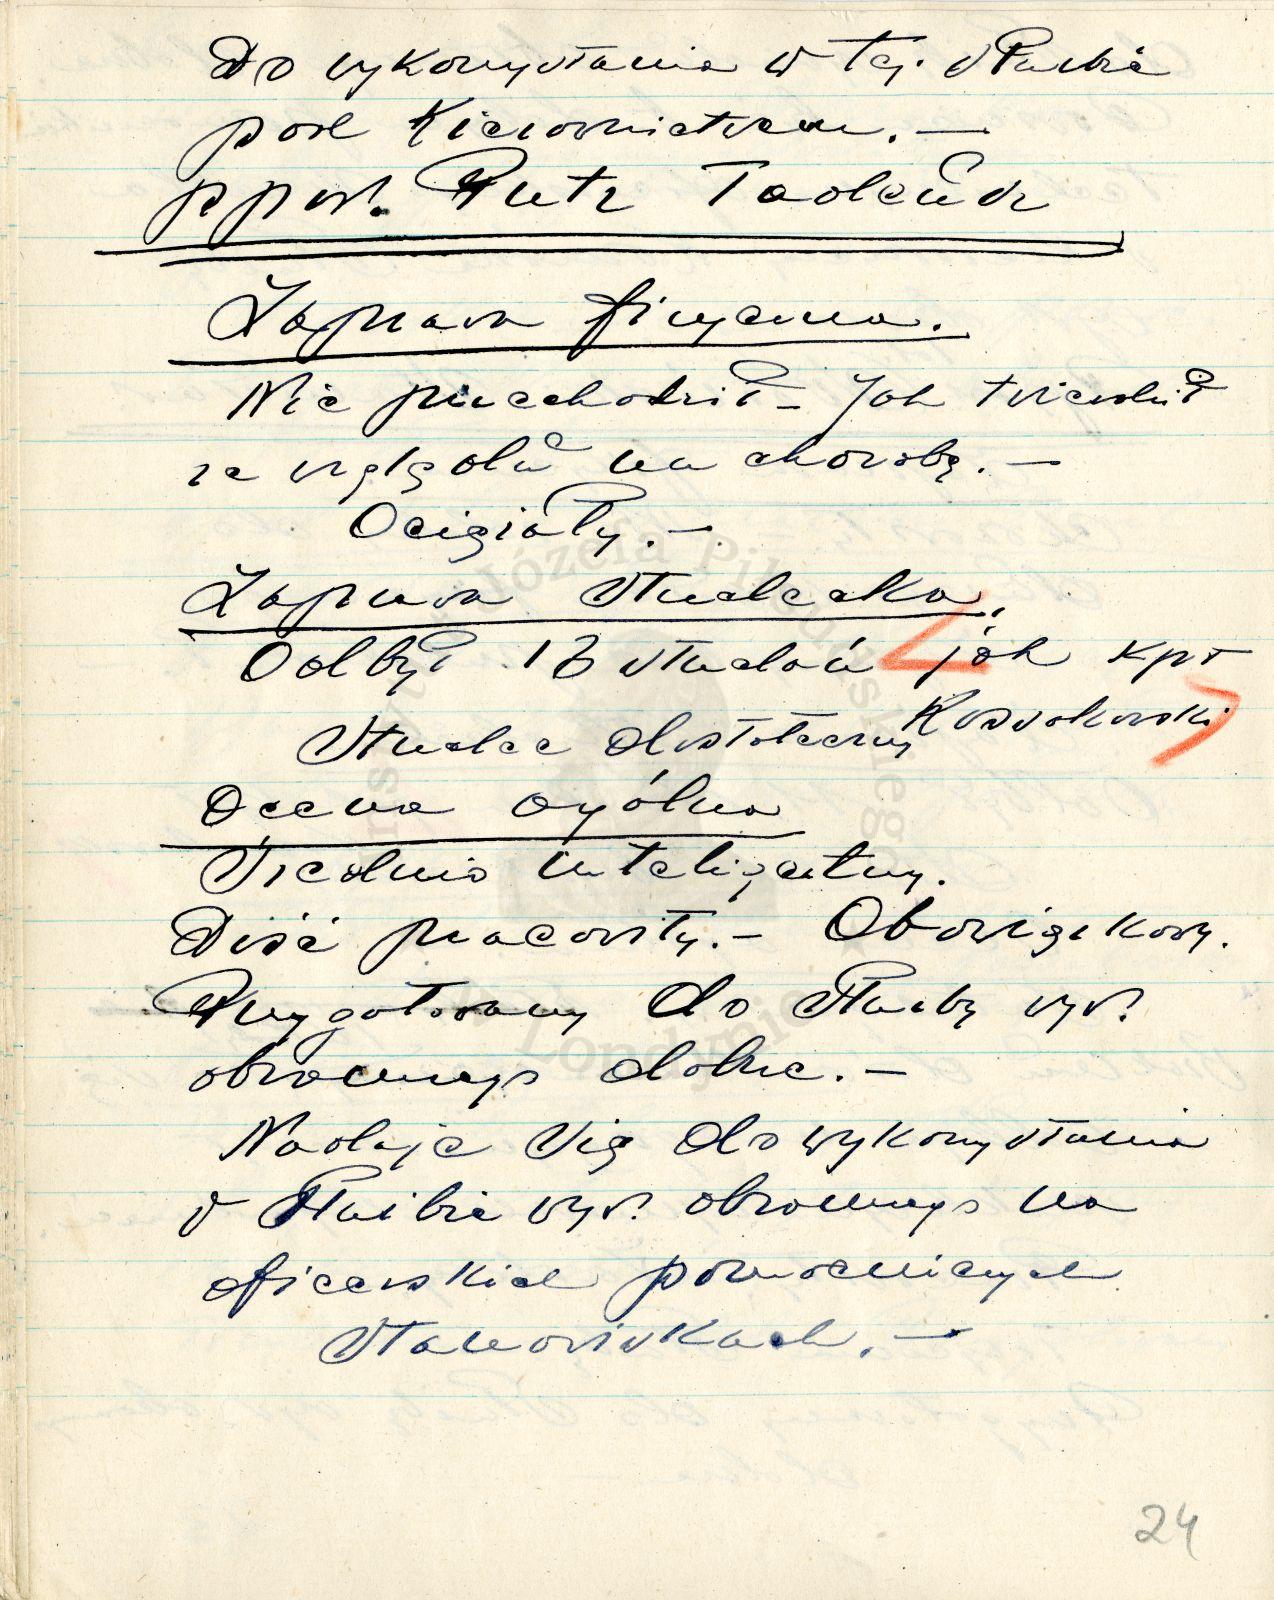 Do wykorzystania w tej służbie
pod Kierownictwem. —
ppor. Putz Tadeusz
Zaprawa fizyczna.
Nie przechodził – Jak twierdził
ze względu na chorobę. —
Ociężały. —
Zaprawa strzelecka.
Odbył 13 strzelań jak kpt
Rosnakowski
Strzelec dostateczny
Ocena ogólna
Średnio inteligentny.
Dość pracowity. – Obowiązkowy.
Przygotowany do służby wyw.
obronnego dobrze. —
Nadaje się do wykorzystania
w służbie wyw. obronnego na
oficerskich pomocniczych
stanowiskach. —
24
Instytut Józefa Piłsudskiego
w Londynie